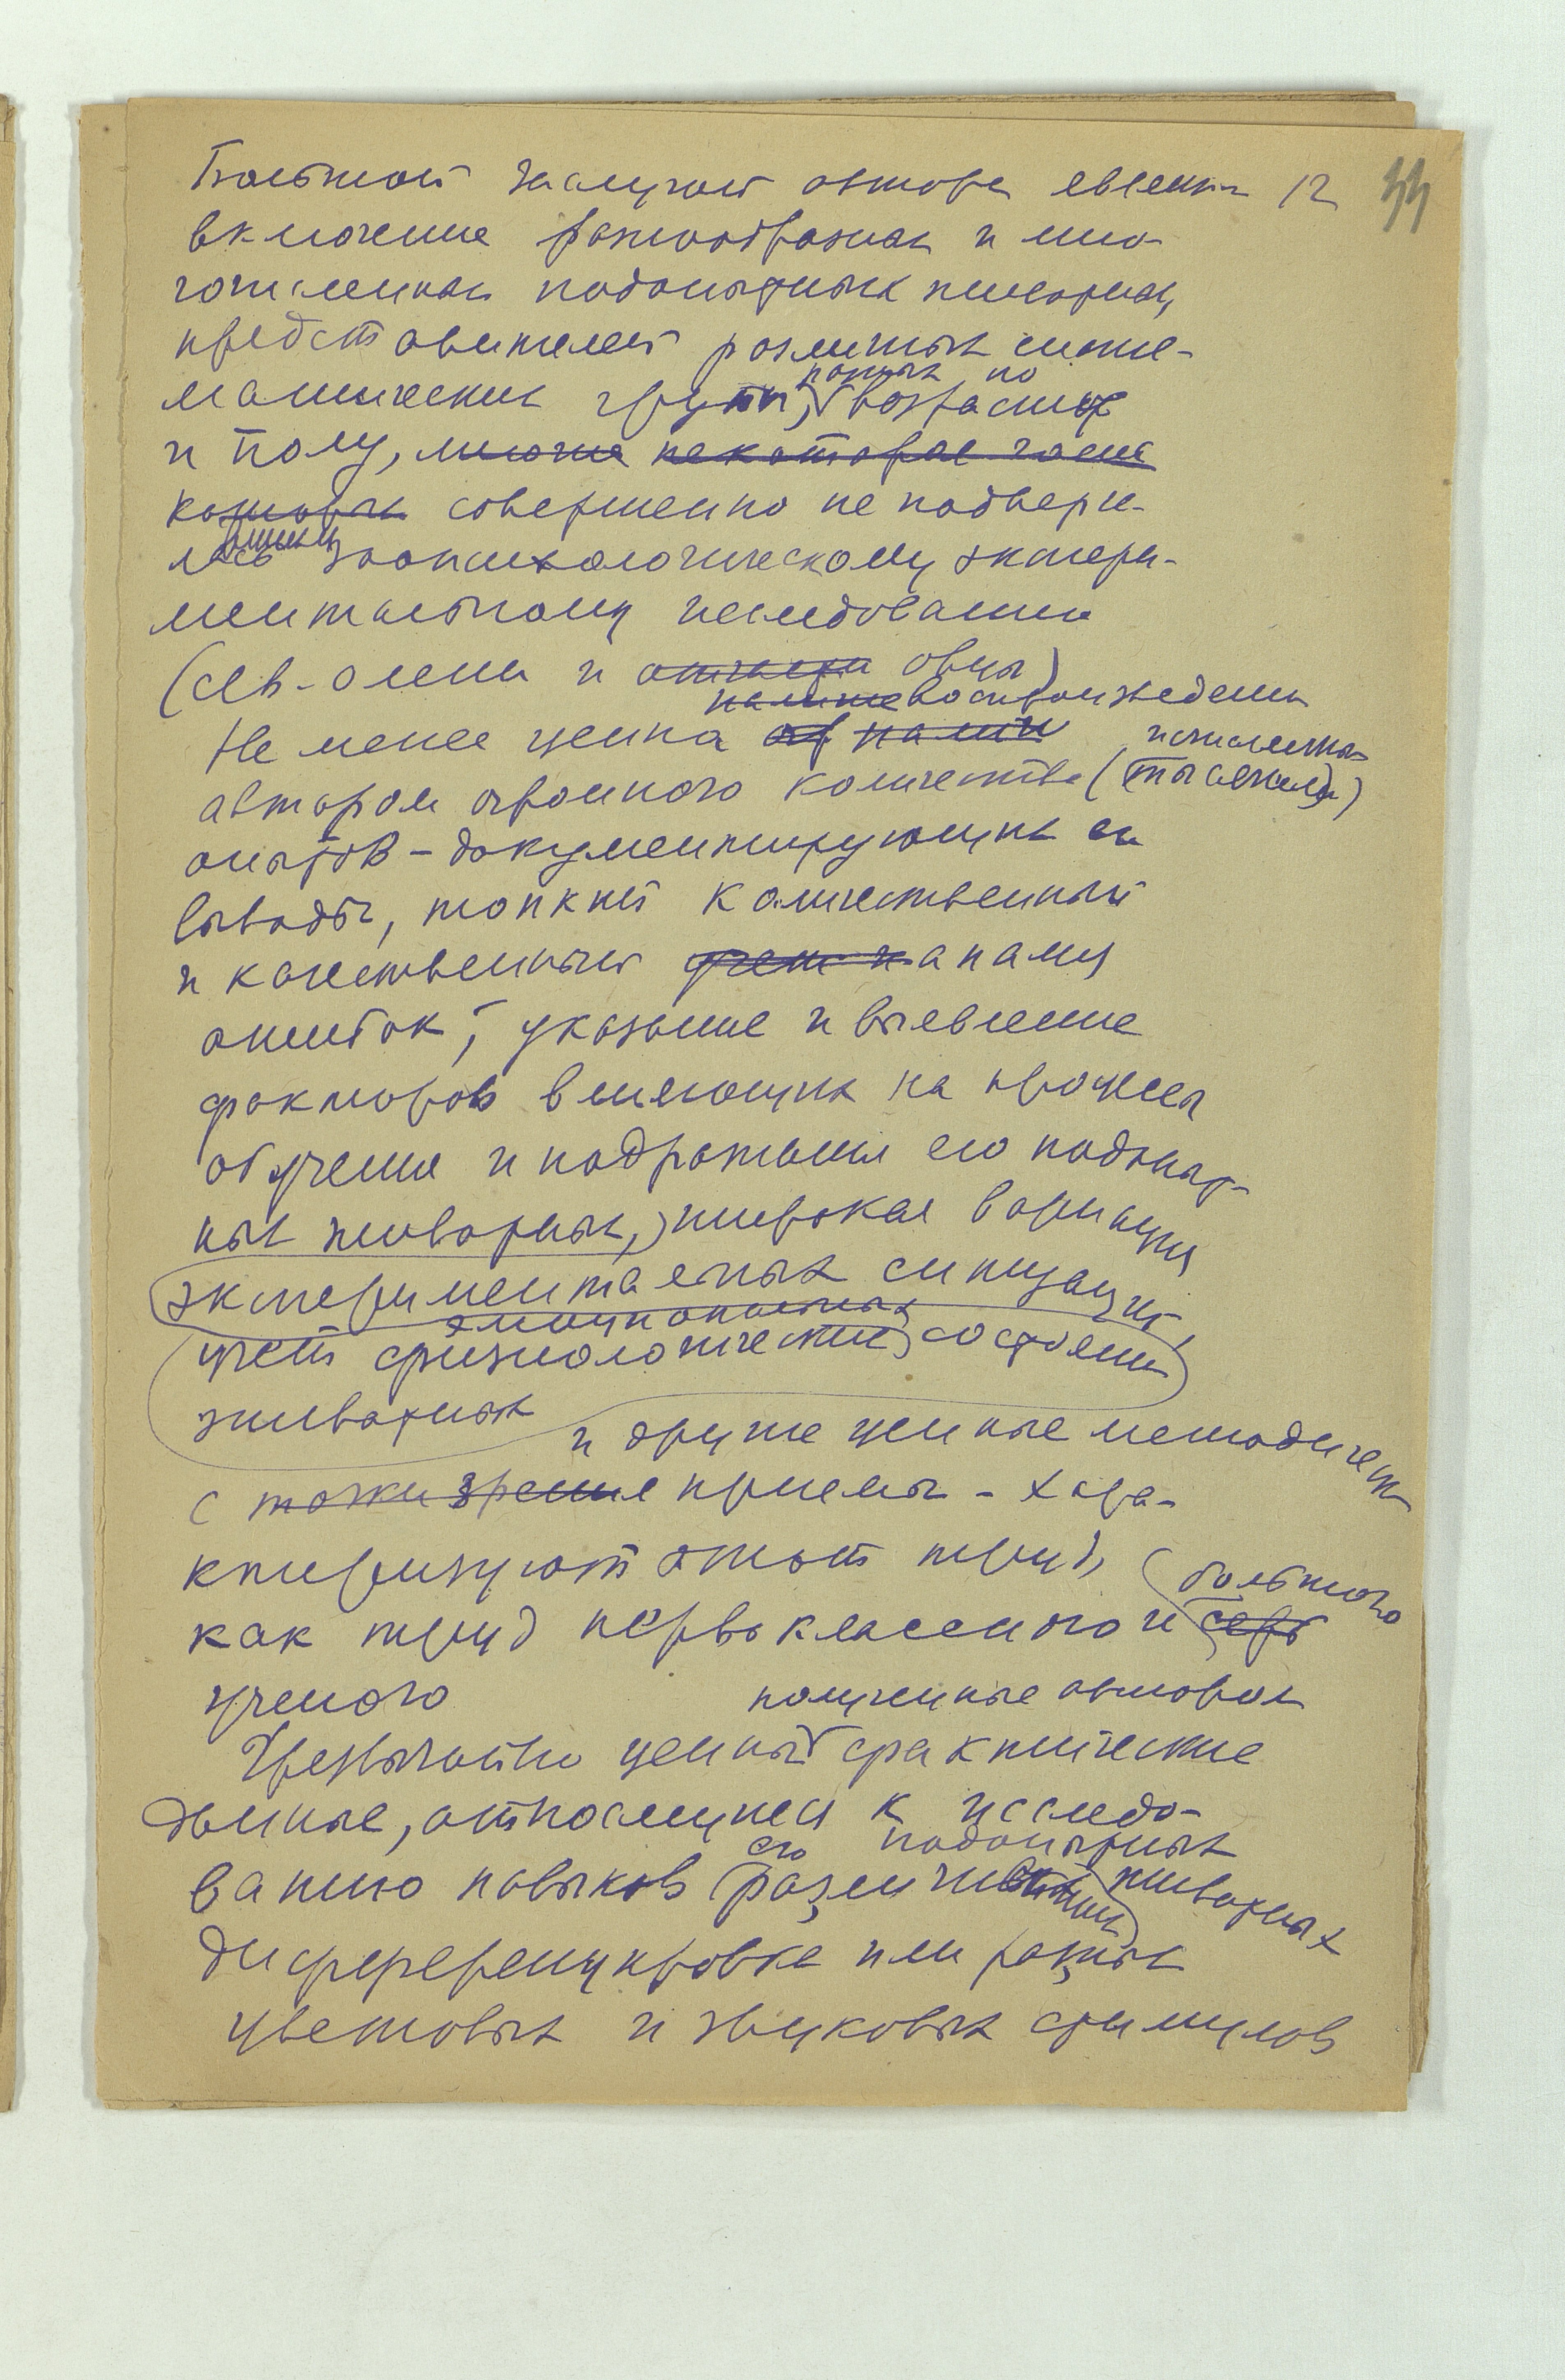 Большой заслугой автора явления 12 44
включение разнообразных и мно-
гочисленных подопытных животных,
представителей различных систе-
матических групп, разных по возрасту
и полу, многие некоторые из
которых совершенно не подверга-
лись зоопсихологическому экспери-
ментальному исследованию
(сев. олени и овцы)
воспроизведение
Не менее ценна исчисляемого
автором огромного количества (тысячами)
опытов – документирующих его
выводы, тонкий количественный
и качественный учет и анализ
ошибок, указание и выявление
факторов влияющих на процессы
обучения и подражания его подопыт-
ных животных, широкая вариация
экспериментальных ситуаций,
эмоциональных
учет физиологических состояний
животных
и другие ценные методическ
с точки зрения приемы – хара-
ктеризуют этот труд,
большого
как труд первоклассного и серь
ученого
полученные автором
Чрезвычайно ценны фактические
данные, относящиеся к исследо-
его подопытных
ванию навыков различения животных
дифференцировке ими разных
цветовых и звуковых стимулов